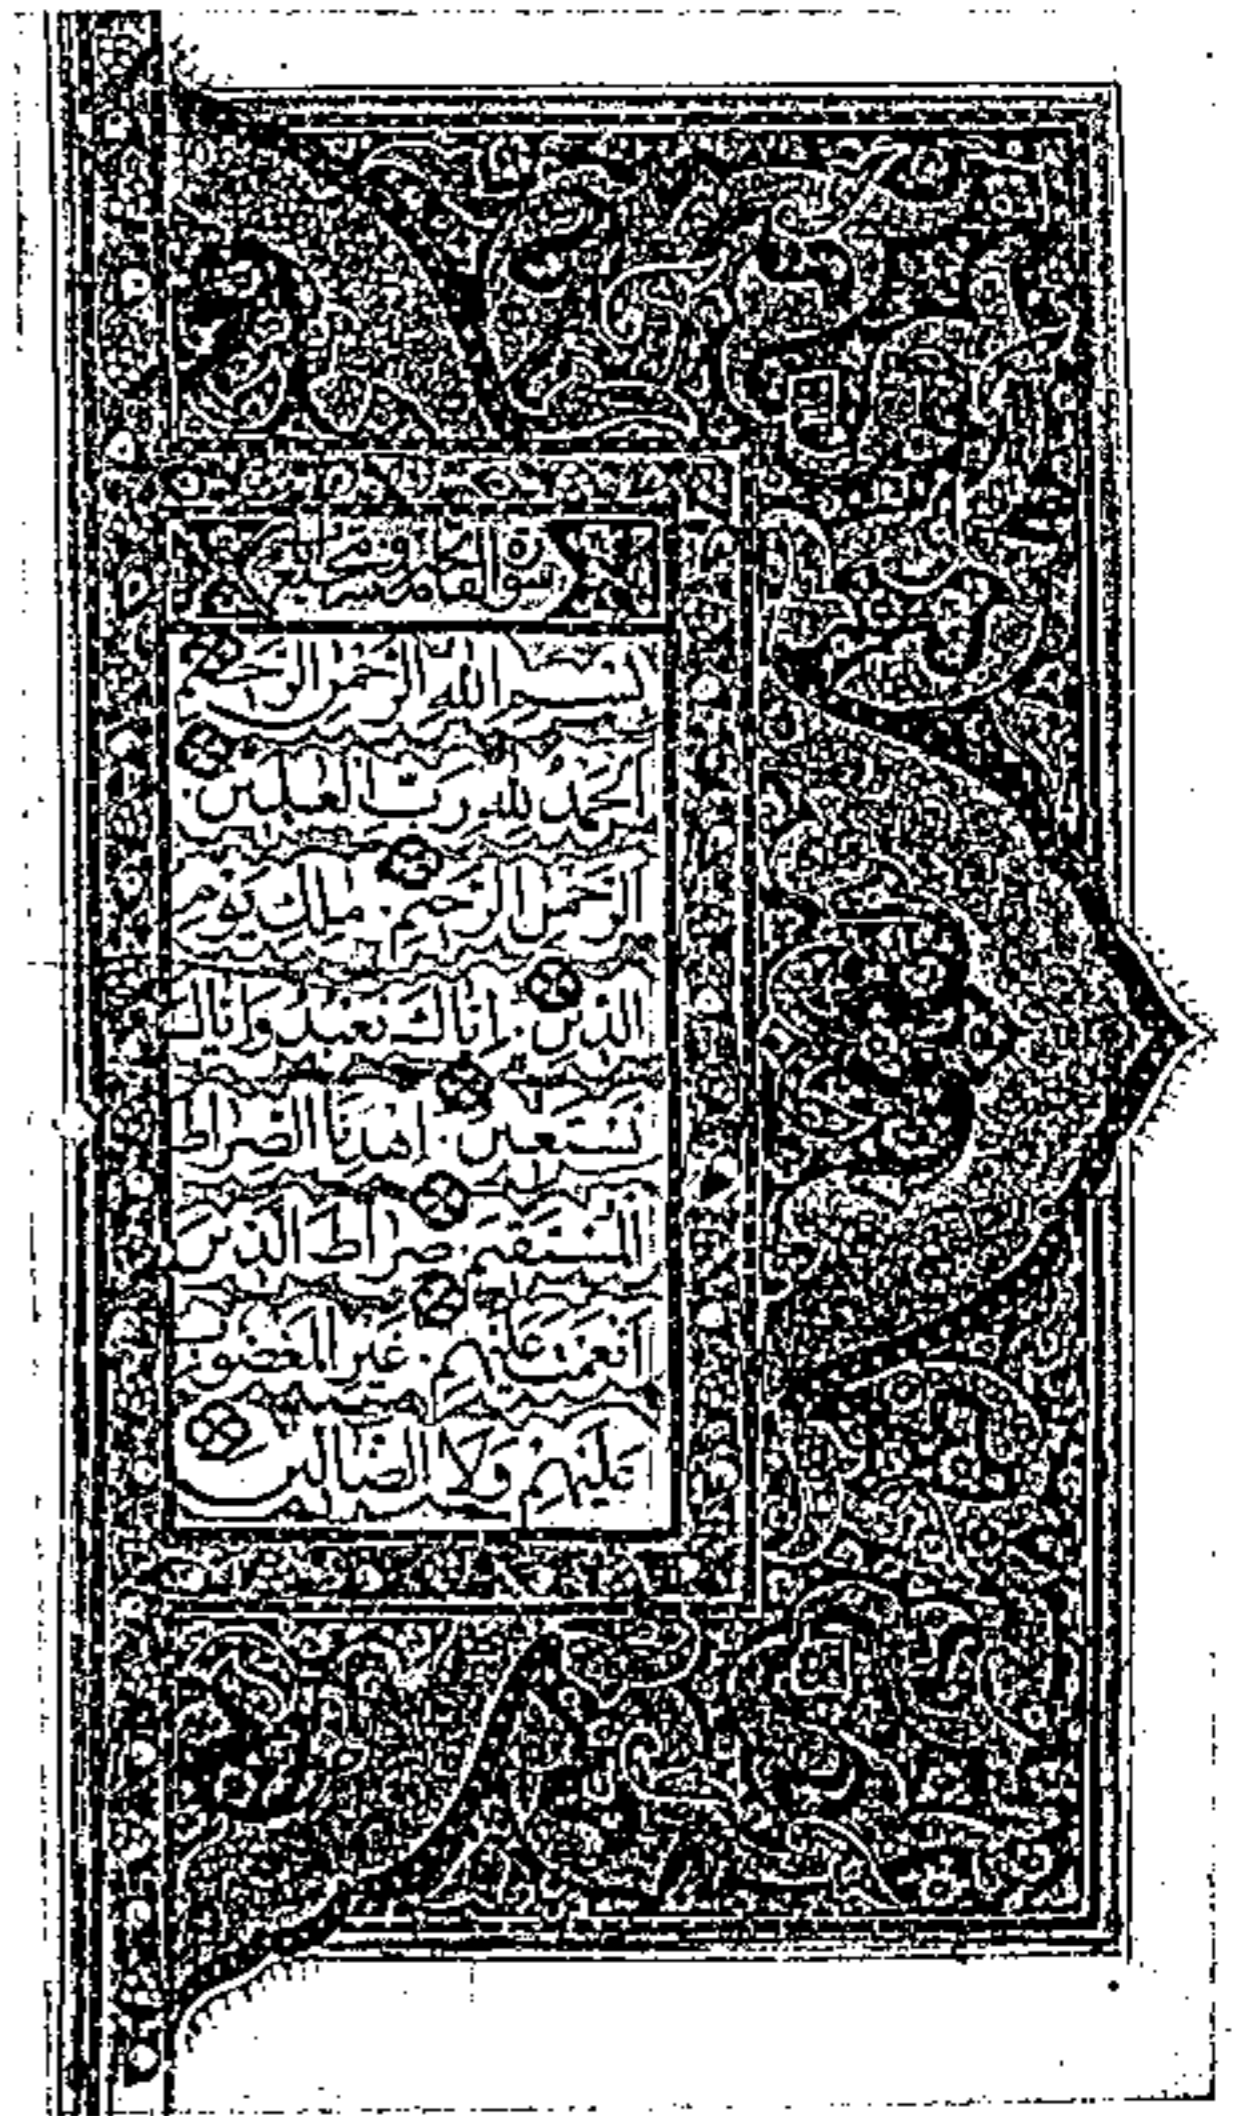 بسم الله الرحمن الرحيم
الحمد لله رب العالمين
الرحمن الرحيم ملك يوم
الدين اياك نعبد واياك
نستعين اهدنا الصراط
المستقيم صراط الذين
انعمت عليهم غير المغضوب
عليهم ولا الضالين